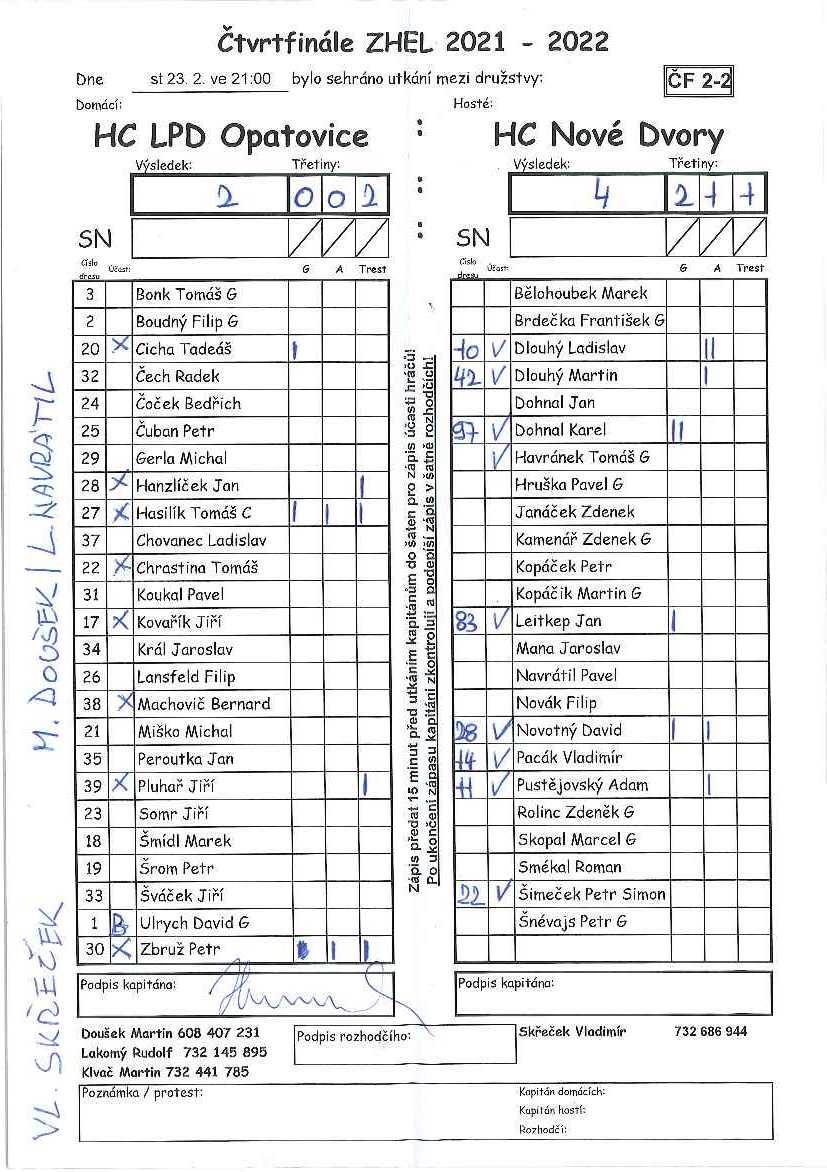 Čtvrtfinále ZHEL 2021 - 2022
Dne st 23. 2. ve 21:00 bylo sehráno utkání mezi družstvy: ČF 2-2
Domácí: Hosté:
HC LPD Opatovice : HC Nové Dvory
Výsledek: Třetiny: Výsledek: Třetiny:
2 0 0 2 : 4 2 1 1
SN : SN
Číslo dresu Účast: G A Trest Číslo dresu Účast: G A Trest
3 Bonk Tomáš G Bělohoubek Marek
2 Boudný Filip G Brdečka František G
20 X Cicha Tadeáš I 10 V Dlouhý Ladislav II
32 Čech Radek 42 V Dlouhý Martin I
24 Čoček Bedřich Dohnal Jan
25 Čuban Petr 97 V Dohnal Karel II
29 Gerla Michal V Havránek Tomáš G
28 X Hanzlíček Jan I Hruška Pavel G
27 X Hasilík Tomáš C I I I Janáček Zdenek
37 Chovanec Ladislav Kamenář Zdenek G
22 X Chrastina Tomáš Kopáček Petr
31 Koukal Pavel Kopáčik Martin G
17 X Kovařík Jiří 83 V Leitkep Jan I
34 Král Jaroslav Mana Jaroslav
26 Lansfeld Filip Navrátil Pavel
38 X Machovič Bernard Novák Filip
21 Miško Michal 28 V Novotný David I I
35 Peroutka Jan 14 V Pacák Vladimír
39 X Pluhař Jiří I 11 V Pustějovský Adam I
23 Somr Jiří Rolinc Zdeněk G
18 Šmídl Marek Skopal Marcel G
19 Šrom Petr Smékal Roman
33 Šváček Jiří 22 V Šimeček Petr Simon
1 B Ulrych David G Šnévajs Petr G
30 X Zbruž Petr I I
Zápis předat 15 minut před utkáním kapitánům do šaten pro zápis účasti hráčů!
Po ukončení zápasu kapitáni zkontrolují a podepíší zápis v šatně rozhodčích!
VL. SKŘEČEK M. DOUŠEK / L. NAVRÁTIL
Podpis kapitána: Podpis kapitána:
Doušek Martin 608 407 231 Podpis rozhodčího: Skřeček Vladimír 732 686 944
Lakomý Rudolf 732 145 895
Klvač Martin 732 441 785
Poznámka / protest: Kapitán domácích:
Kapitán hostí:
Rozhodčí: